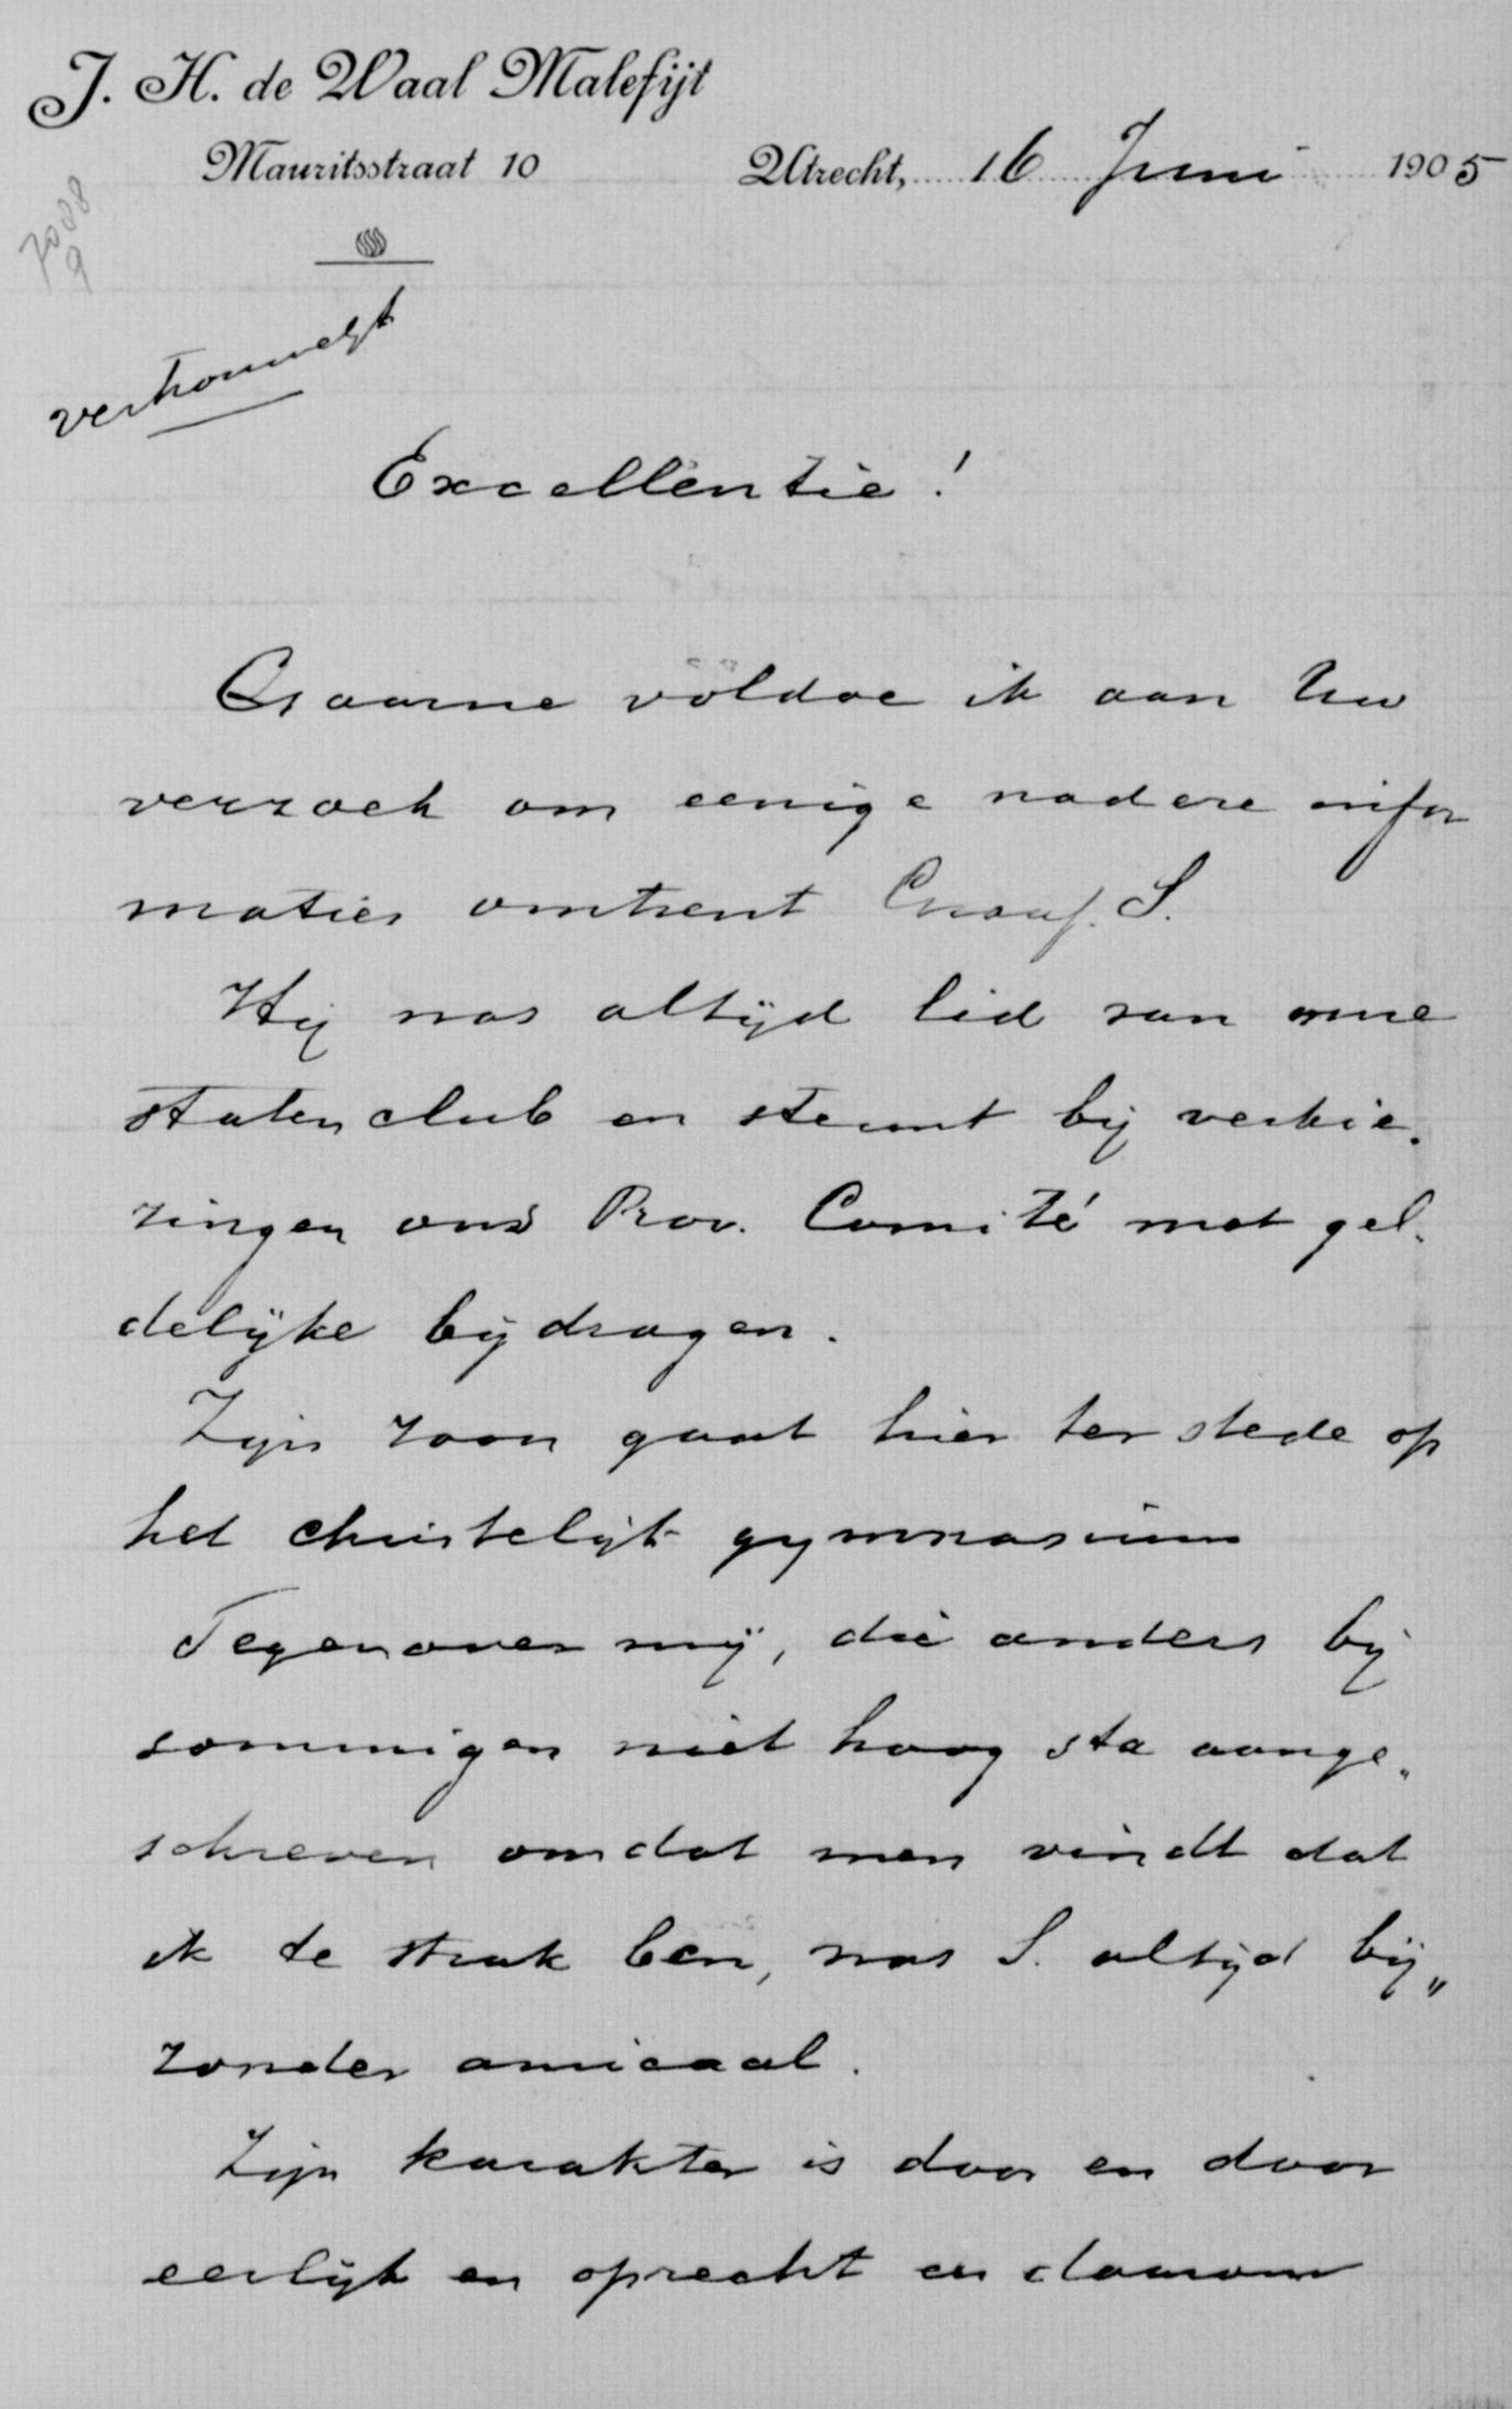 J. H. de Waal Malefijt
Mauritsstraat 10
Utrecht, 16 Juni 1905
7088
9
Excellentie!
Gaarne voldoe ik aan Uw
verzoek om eenige nadere infor
maties omtrent S.
Hij was altijd lid van onze
statenclub en steunt bij verkie-
zingen ons Prov. Comité met gel-
delijke bijdragen.
Zijn zoon gaat hier ter stede op
het christelijk gymnasium
Tegenover mij, die anders bij
sommigen niet hoog sta aange-
schreven omdat men vindt dat
ik te strak ben, was S. altijd bij„
zonder amicaal.
Zijn karakter is door en door
eerlijk en oprecht en daarom